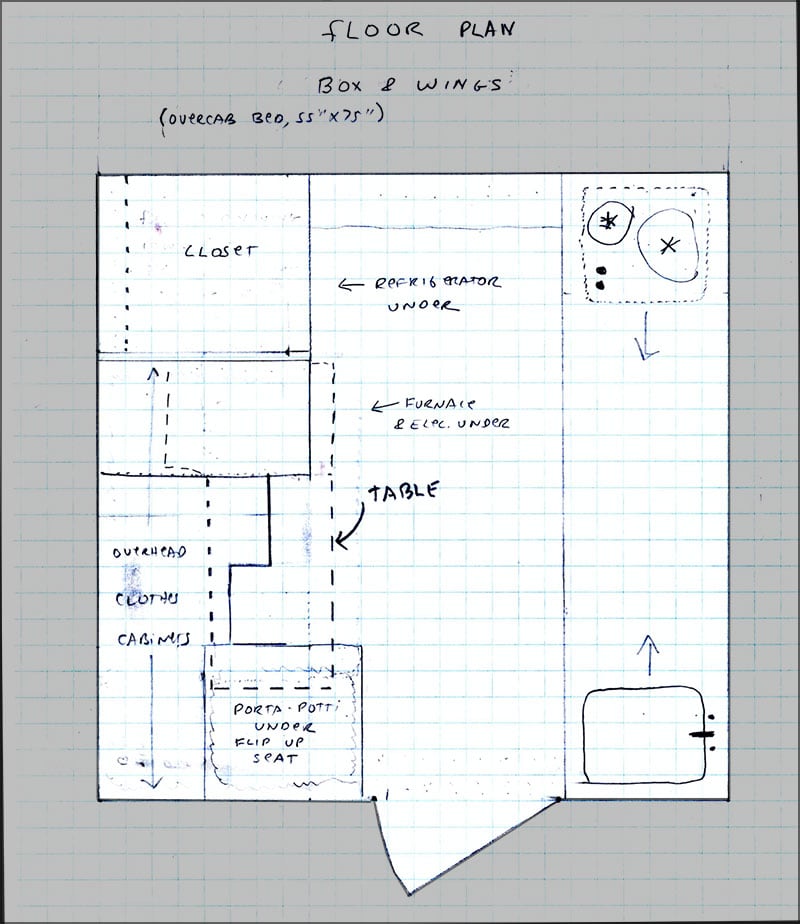 FLOOR PLAN
BOX & WINGS
(OVERCAB BED, 55" X 75")
CLOSET
REFRIGERATOR
UNDER
FURNACE
& ELEC. UNDER
TABLE
OVERHEAD
CLOTHES
CABINETS
PORTA-POTTI
UNDER
FLIP UP
SEAT